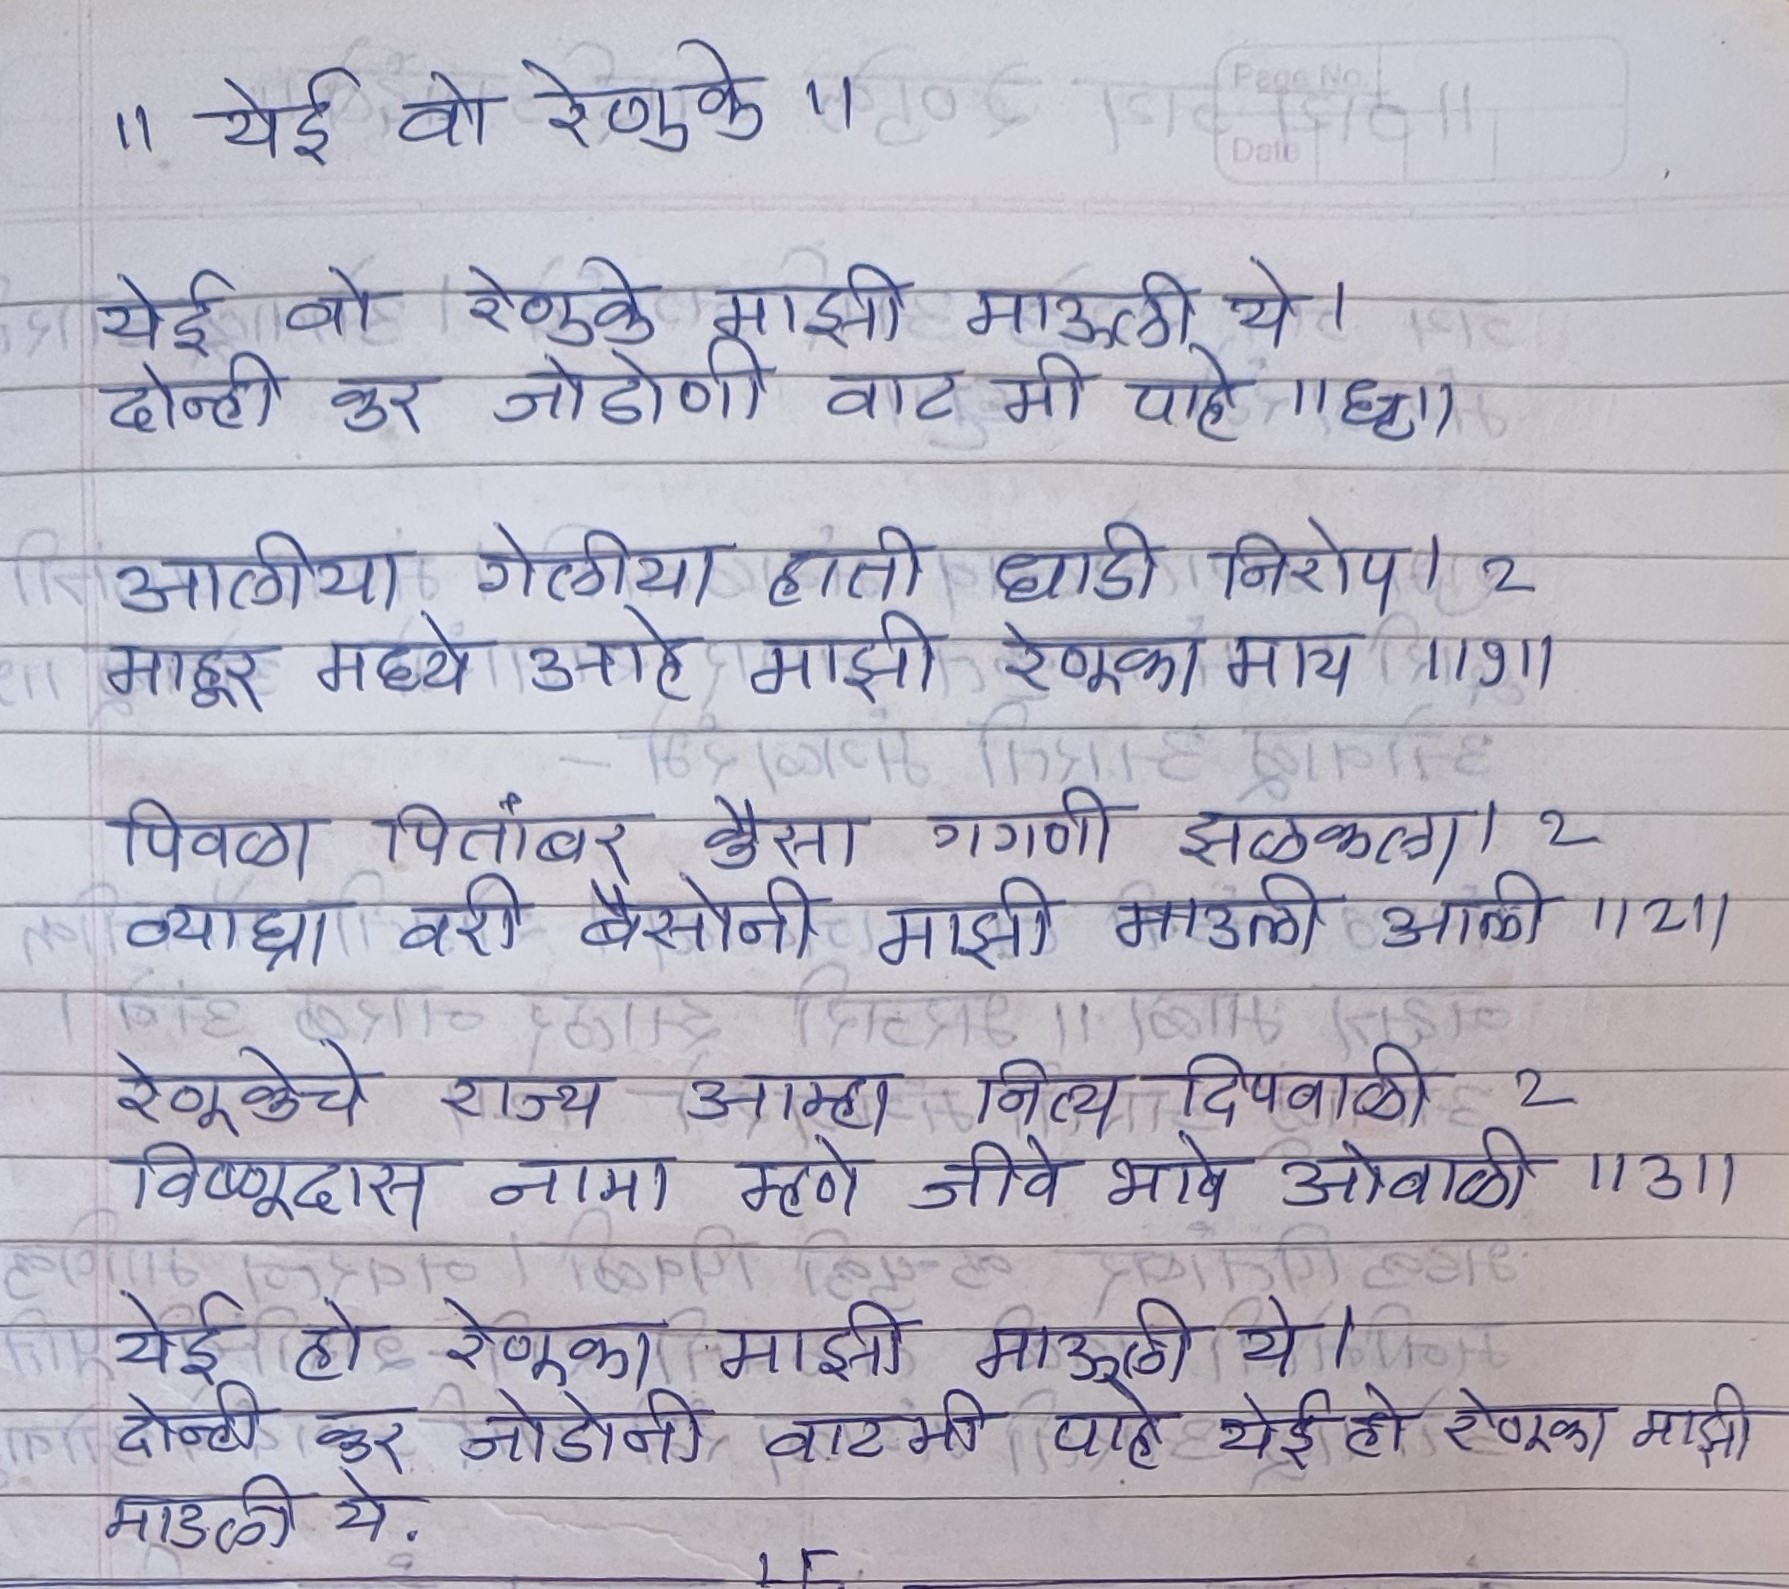 ॥ येई वो रेणुके ॥
येई वो रेणुके माझी माऊली ये।
दोन्ही कर जोडोणी वाट मी पाहे ॥धृ॥
आलीया गेलीया हाती धाडी निरोप। २
माहूर मध्ये आहे माझी रेणूका माय ॥१॥
पिवळा पितांबर कैसा गगणी झळकला। २
व्याघ्रा वरी बैसोनी माझी माउली आली ॥२॥
रेणूकेचे राज्य आम्हा नित्य दिपवाळी २
विष्णूदास नामा म्हणे जीवे भावे ओवाळी ॥३॥
येई हो रेणूका माझी माऊली ये।
दोन्ही कर जोडोनी वाट मी पाहे येई हो रेणूका माझी
माउली ये.